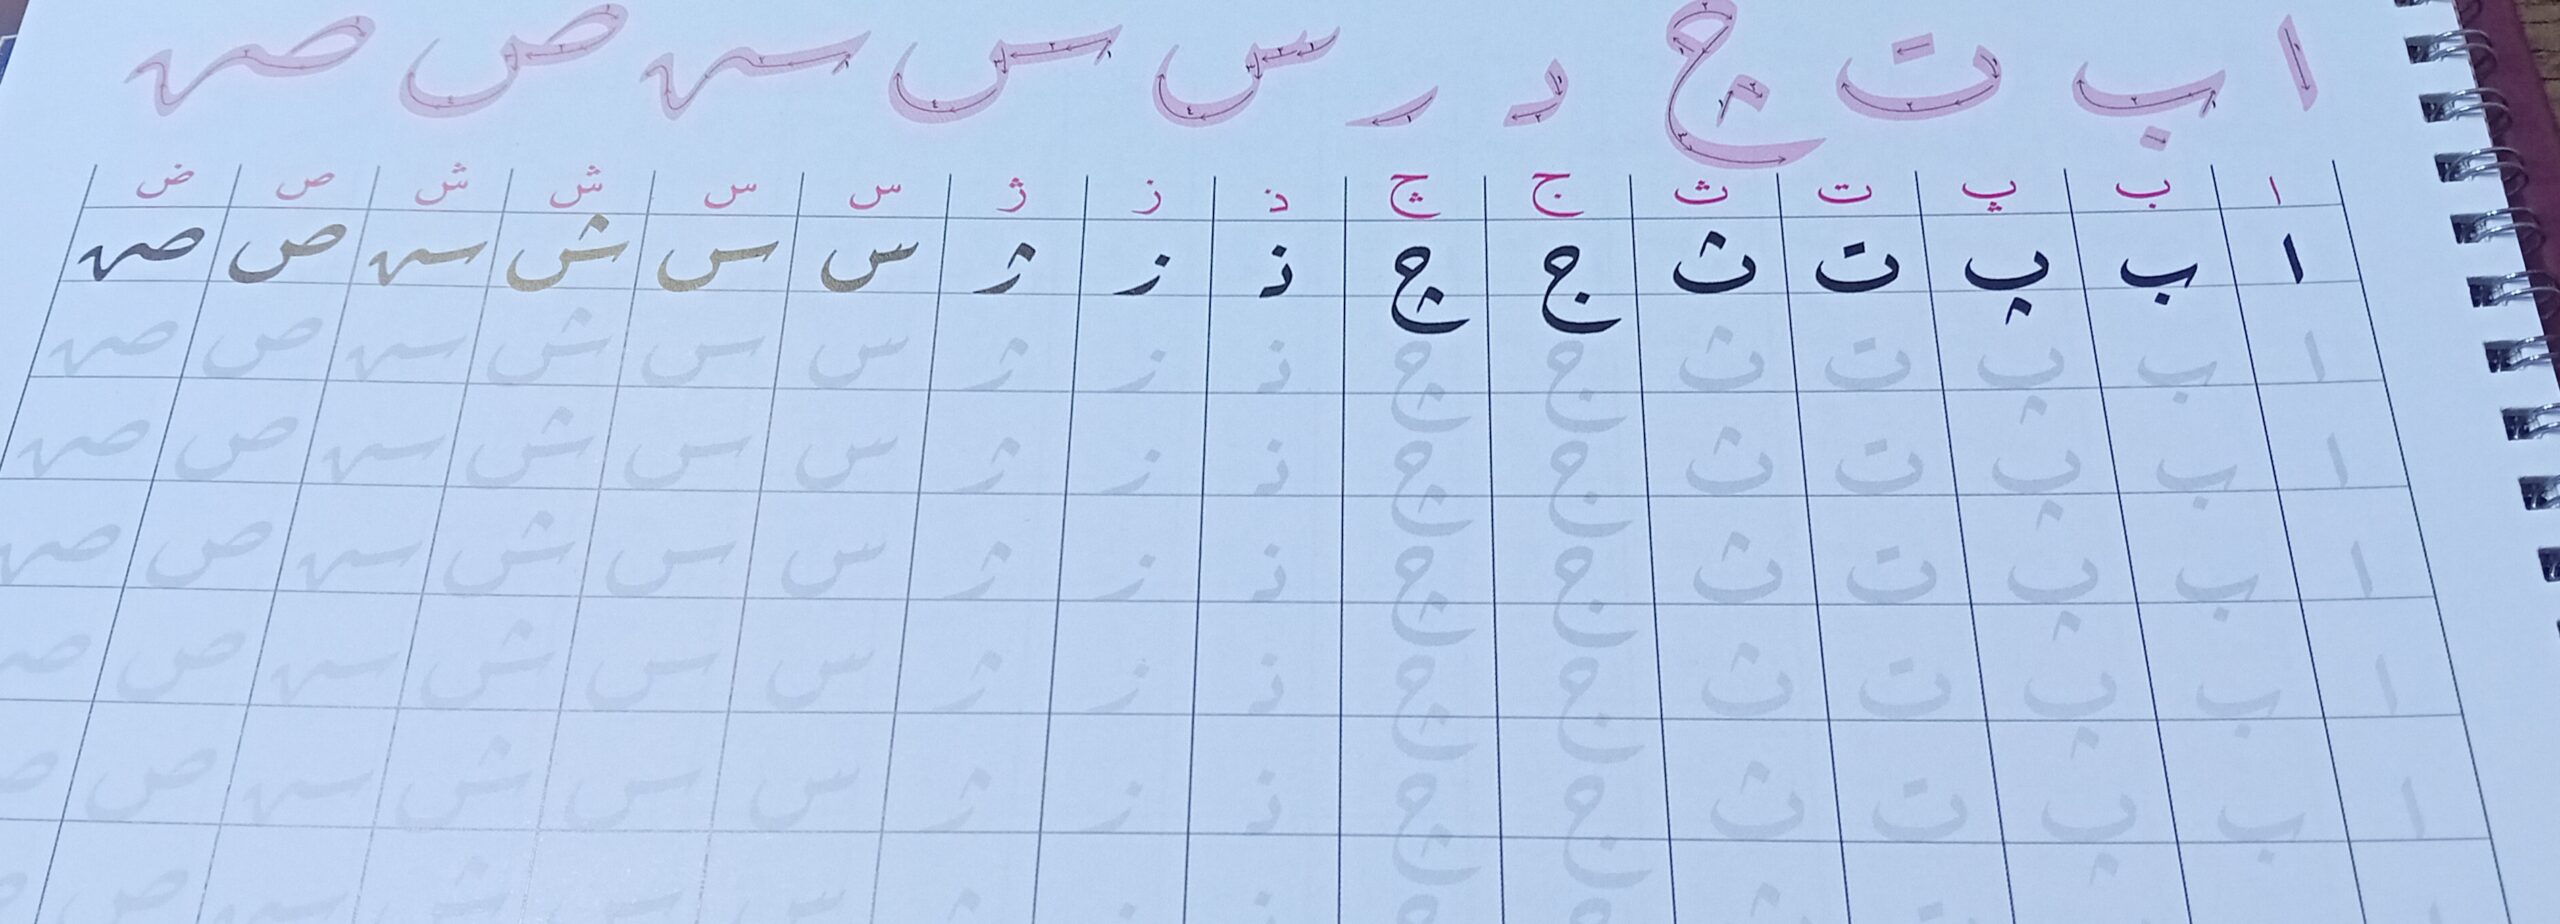 ا ب ت ج د ر س س سـ ص صـ
ا ب پ ت ث ج چ ذ ز ژ س س ش ش ص ض
ا ب پ ت ث ج چ ذ ز ژ س س ش سـ ص صـ
ا ب پ ت ث ج چ ذ ز ژ س س ش سـ ص صـ
ا ب پ ت ث ج چ ذ ز ژ س س ش سـ ص صـ
ا ب پ ت ث ج چ ذ ز ژ س س ش سـ ص صـ
ا ب پ ت ث ج چ ذ ز ژ س س ش سـ ص صـ
ا ب پ ت ث ج چ ذ ز ژ س س ش سـ ص صـ